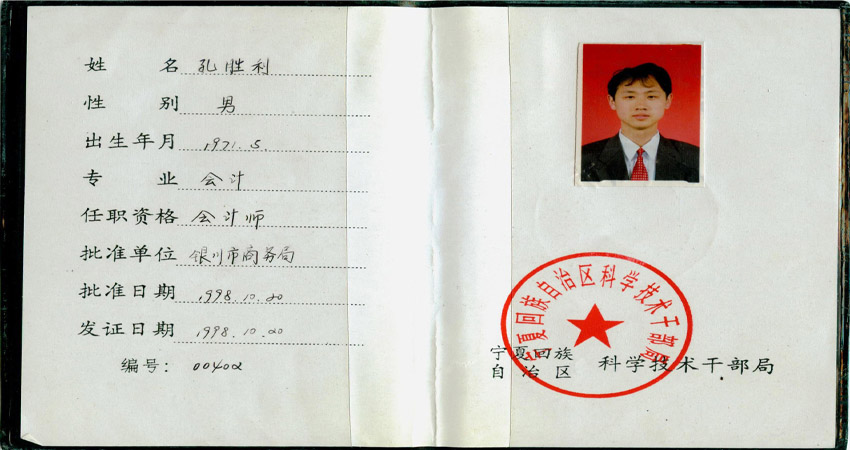 姓 名 孔胜利
性 别 男
出生年月 1971.5.
专 业 会计
任职资格 会计师
批准单位 银川市商务局
批准日期 1998.10.20
发证日期 1998.10.20
编号: 00402
宁夏回族自治区科学技术干部局
宁夏回族
自治区 科学技术干部局